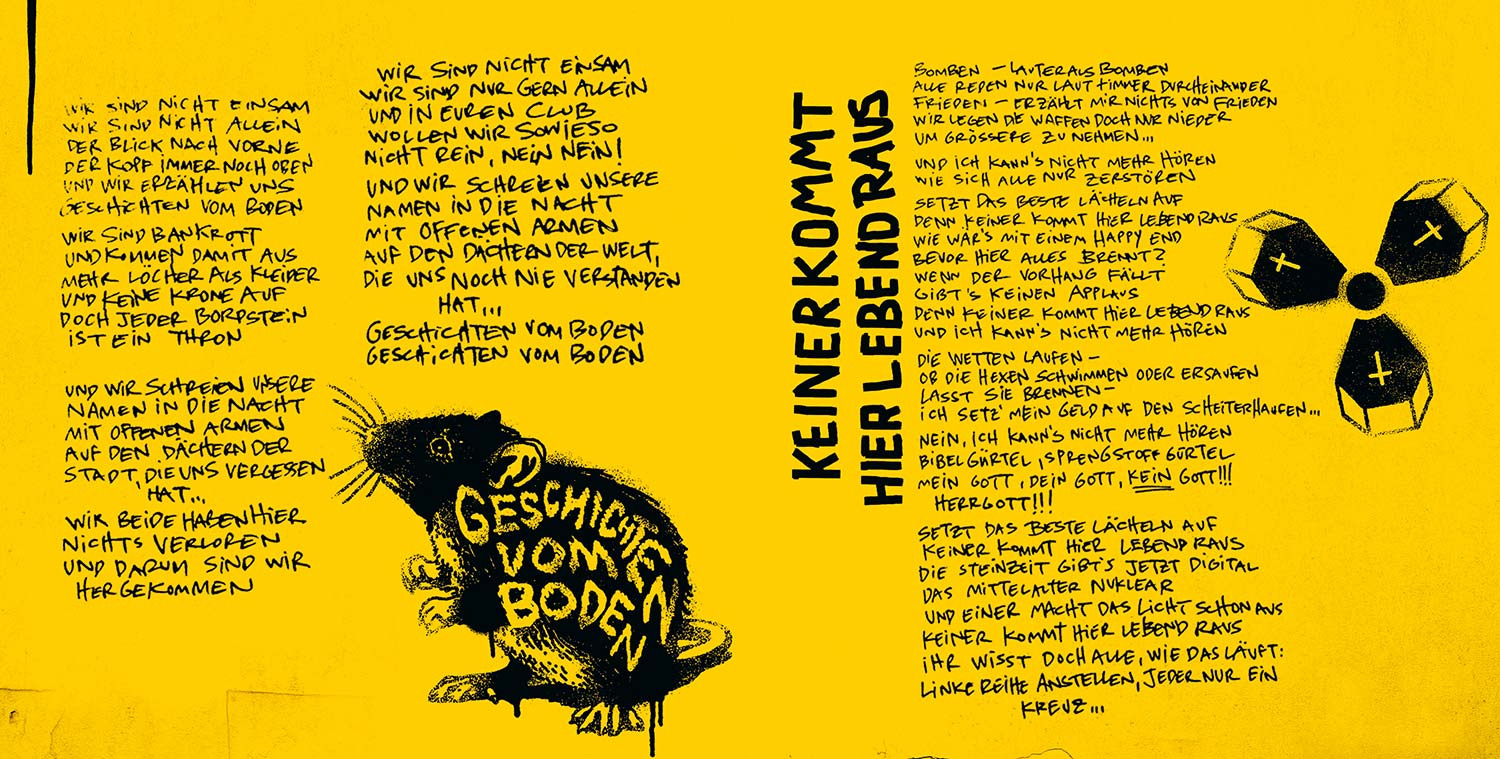 WIR SIND NICHT EINSAM
WIR SIND NICHT ALLEIN
DER BLICK NACH VORNE
DER KOPF IMMER NOCH OBEN
UND WIR ERZÄHLEN UNS
GESCHICHTEN VOM BODEN
WIR SIND BANKROTT
UND KOMMEN DAMIT AUS
MEHR LÖCHER ALS KLEIDER
UND KEINE KRONE AUF
DOCH JEDER BORDSTEIN
IST EIN THRON
UND WIR SCHREIEN UNSERE
NAMEN IN DIE NACHT
MIT OFFENEN ARMEN
AUF DEN DÄCHERN DER
STADT, DIE UNS VERGESSEN
HAT...
WIR BEIDE HABEN HIER
NICHTS VERLOREN
UND DARUM SIND WIR
HERGEKOMMEN
WIR SIND NICHT EINSAM
WIR SIND NUR GERN ALLEIN
UND IN EUREN CLUB
WOLLEN WIR SOWIESO
NICHT REIN, NEIN NEIN!
UND WIR SCHREIEN UNSERE
NAMEN IN DIE NACHT
MIT OFFENEN ARMEN
AUF DEN DÄCHERN DER WELT,
DIE UNS NOCH NIE VERSTANDEN
HAT...
GESCHICHTEN VOM BODEN
GESCHICHTEN VOM BODEN
GESCHICHTEN
VOM
BODEN
KEINER KOMMT
HIER LEBEND RAUS
BOMBEN – LAUTER ALS BOMBEN
ALLE REDEN NUR LAUT + IMMER DURCHEINANDER
FRIEDEN – ERZÄHLT MIR NICHTS VON FRIEDEN
WIR LEGEN DIE WAFFEN DOCH NUR NIEDER
UM GRÖSSERE ZU NEHMEN...
UND ICH KANN'S NICHT MEHR HÖREN
WIE SICH ALLE NUR ZERSTÖREN
SETZT DAS BESTE LÄCHELN AUF
DENN KEINER KOMMT HIER LEBEND RAUS
WIE WÄR'S MIT EINEM HAPPY END
BEVOR HIER ALLES BRENNT?
WENN DER VORHANG FÄLLT
GIBT'S KEINEN APPLAUS
DENN KEINER KOMMT HIER LEBEND RAUS
UND ICH KANN'S NICHT MEHR HÖREN
DIE WETTEN LAUFEN –
OB DIE HEXEN SCHWIMMEN ODER ERSAUFEN
LASST SIE BRENNEN –
ICH SETZ' MEIN GELD AUF DEN SCHEITERHAUFEN...
NEIN, ICH KANN'S NICHT MEHR HÖREN
BIBELGÜRTEL, SPRENGSTOFFGÜRTEL
MEIN GOTT, DEIN GOTT, KEIN GOTT!!!
HERRGOTT!!!
SETZT DAS BESTE LÄCHELN AUF
KEINER KOMMT HIER LEBEND RAUS
DIE STEINZEIT GIBT'S JETZT DIGITAL
DAS MITTELALTER NUKLEAR
UND EINER MACHT DAS LICHT SCHON AUS
KEINER KOMMT HIER LEBEND RAUS
IHR WISST DOCH ALLE, WIE DAS LÄUFT:
LINKE REIHE ANSTELLEN, JEDER NUR EIN
KREUZ...